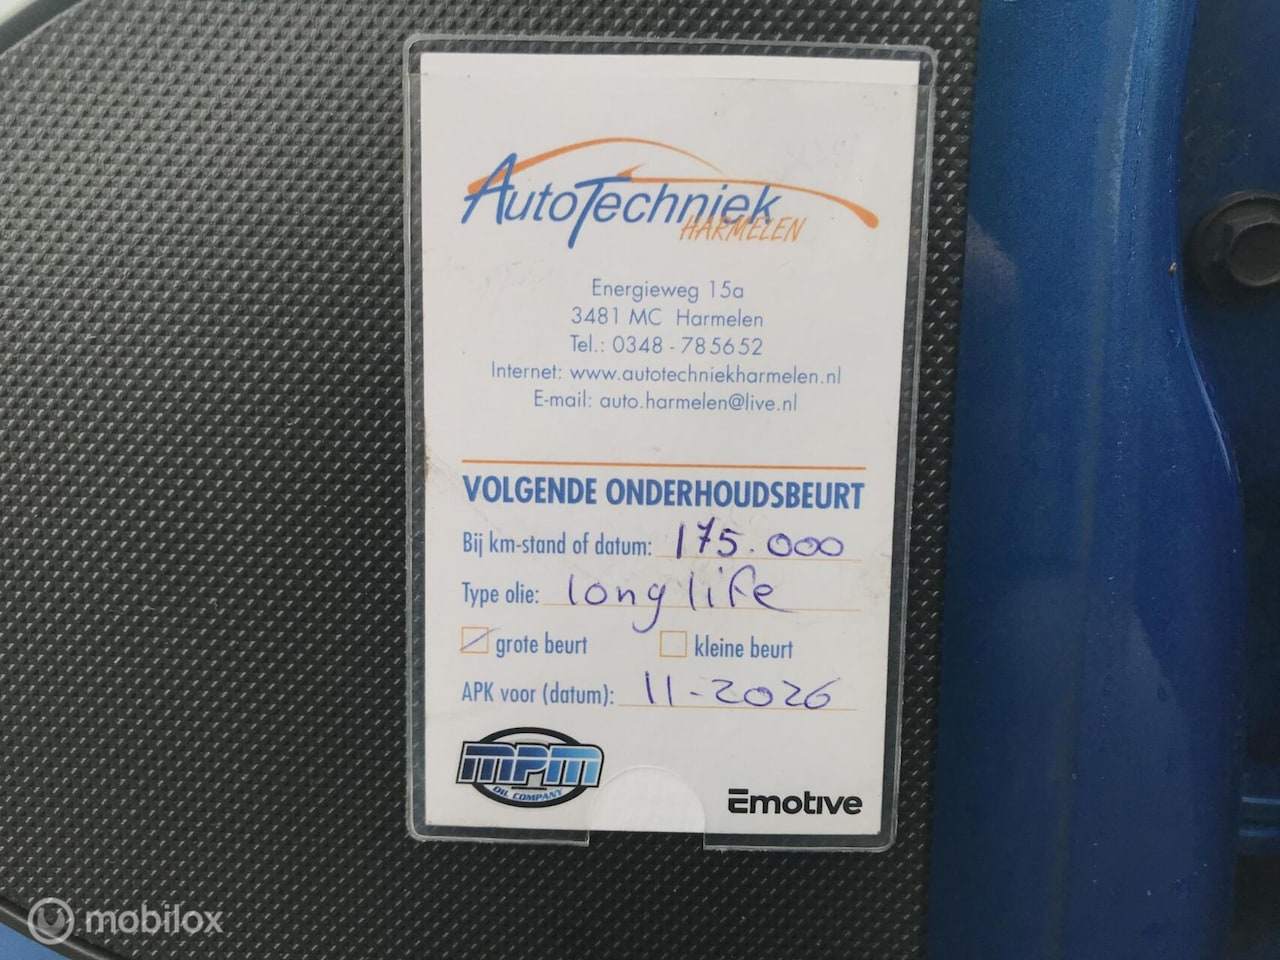 AutoTechniek
HARMELEN
Energieweg 15a
3481 MC Harmelen
Tel.: 0348 - 785652
Internet: www.autotechniekharmelen.nl
E-mail: auto.harmelen@live.nl
VOLGENDE ONDERHOUDSBEURT
Bij km-stand of datum: 175.000
Type olie: longlife
grote beurt kleine beurt
APK voor (datum): 11-2026
mpm
OIL COMPANY
Emotive
mobilox